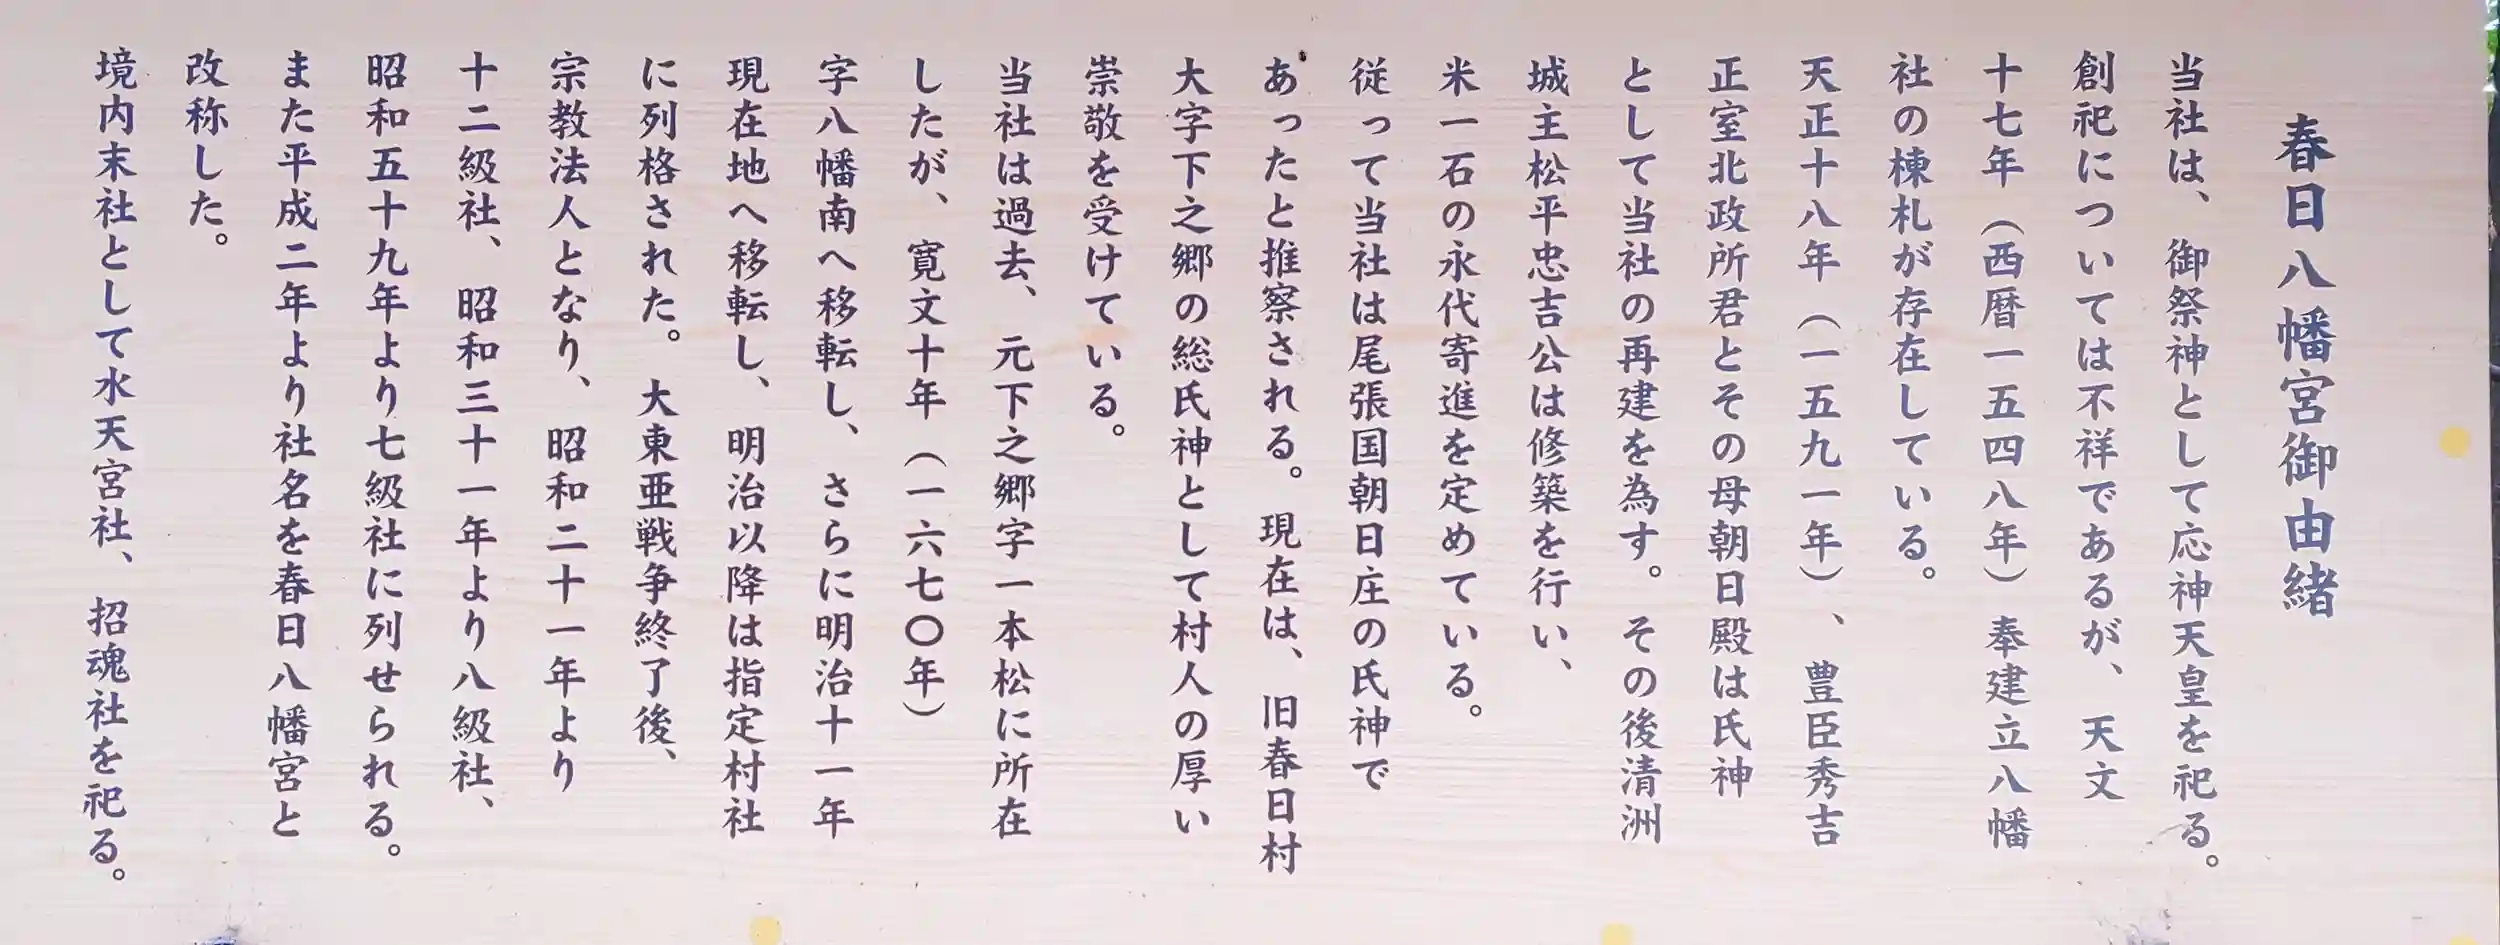 春日八幡宮御由緒
当社は、御祭神として応神天皇を祀る。
創祀については不祥であるが、天文
十七年（西暦一五四八年）奉建立八幡
社の棟札が存在している。
天正十八年（一五九一年）、豊臣秀吉
正室北政所君とその母朝日殿は氏神
として当社の再建を為す。その後清洲
城主松平忠吉公は修築を行い、
米一石の永代寄進を定めている。
従って当社は尾張国朝日庄の氏神で
あったと推察される。現在は、旧春日村
大字下之郷の総氏神として村人の厚い
崇敬を受けている。
当社は過去、元下之郷字一本松に所在
したが、寛文十年（一六七〇年）
字八幡南へ移転し、さらに明治十一年
現在地へ移転し、明治以降は指定村社
に列格された。大東亜戦争終了後、
宗教法人となり、昭和二十一年より
十二級社、昭和三十一年より八級社、
昭和五十九年より七級社に列せられる。
また平成二年より社名を春日八幡宮と
改称した。
境内末社として水天宮社、招魂社を祀る。